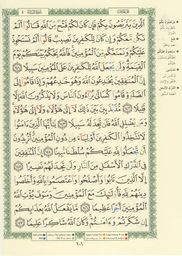 ٱلَّذِينَ يَتَرَبَّصُونَ بِكُمْ فَإِن كَانَ لَكُمْ فَتْحٌ مِّنَ ٱللَّهِ قَالُوٓا۟ أَلَمْ
نَكُن مَّعَكُمْ وَإِن كَانَ لِلْكَٰفِرِينَ نَصِيبٌ قَالُوٓا۟ أَلَمْ نَسْتَحْوِذْ
عَلَيْكُمْ وَنَمْنَعْكُم مِّنَ ٱلْمُؤْمِنِينَ فَٱللَّهُ يَحْكُمُ بَيْنَكُمْ يَوْمَ
ٱلْقِيَٰمَةِ وَلَن يَجْعَلَ ٱللَّهُ لِلْكَٰفِرِينَ عَلَى ٱلْمُؤْمِنِينَ سَبِيلًا ١٤١
إِنَّ ٱلْمُنَٰفِقِينَ يُخَٰدِعُونَ ٱللَّهَ وَهُوَ خَٰدِعُهُمْ وَإِذَا قَامُوٓا۟ إِلَى
ٱلصَّلَوٰةِ قَامُوا۟ كُسَالَىٰ يُرَآءُونَ ٱلنَّاسَ وَلَا يَذْكُرُونَ ٱللَّهَ إِلَّا
قَلِيلًا ١٤٢ مُّذَبْذَبِينَ بَيْنَ ذَٰلِكَ لَآ إِلَىٰ هَٰٓؤُلَآءِ وَلَآ إِلَىٰ هَٰٓؤُلَآءِ
وَمَن يُضْلِلِ ٱللَّهُ فَلَن تَجِدَ لَهُۥ سَبِيلًا ١٤٣ يَٰٓأَيُّهَا ٱلَّذِينَ ءَامَنُوا۟
لَا تَتَّخِذُوا۟ ٱلْكَٰفِرِينَ أَوْلِيَآءَ مِن دُونِ ٱلْمُؤْمِنِينَ أَتُرِيدُونَ
أَن تَجْعَلُوا۟ لِلَّهِ عَلَيْكُمْ سُلْطَٰنًا مُّبِينًا ١٤٤ إِنَّ ٱلْمُنَٰفِقِينَ
فِى ٱلدَّرْكِ ٱلْأَسْفَلِ مِنَ ٱلنَّارِ وَلَن تَجِدَ لَهُمْ نَصِيرًا ١٤٥
إِلَّا ٱلَّذِينَ تَابُوا۟ وَأَصْلَحُوا۟ وَٱعْتَصَمُوا۟ بِٱللَّهِ وَأَخْلَصُوا۟
دِينَهُمْ لِلَّهِ فَأُو۟لَٰٓئِكَ مَعَ ٱلْمُؤْمِنِينَ وَسَوْفَ يُؤْتِ ٱللَّهُ
ٱلْمُؤْمِنِينَ أَجْرًا عَظِيمًا ١٤٦ مَّا يَفْعَلُ ٱللَّهُ بِعَذَابِكُمْ
إِن شَكَرْتُمْ وَءَامَنتُمْ وَكَانَ ٱللَّهُ شَاكِرًا عَلِيمًا ١٤٧
١٠١